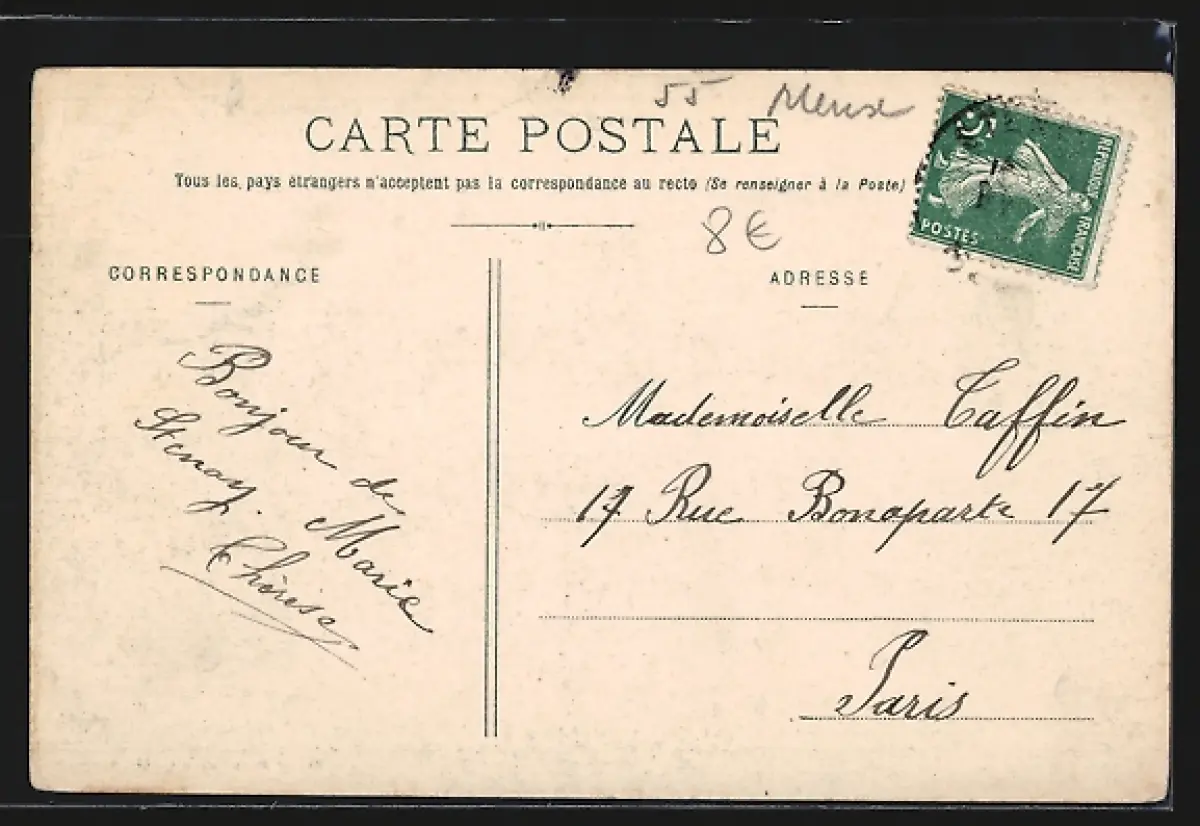 55 Meuse
CARTE POSTALE
Tous les pays étrangers n'acceptent pas la correspondance au recto (Se renseigner à la Poste)
8€
5
RÉPUBLIQUE FRANÇAISE
POSTES
CORRESPONDANCE
ADRESSE
Bonjour de
Stenay.
Marie
Thérèse
Mademoiselle Taffin
17 Rue Bonaparte 17
Paris